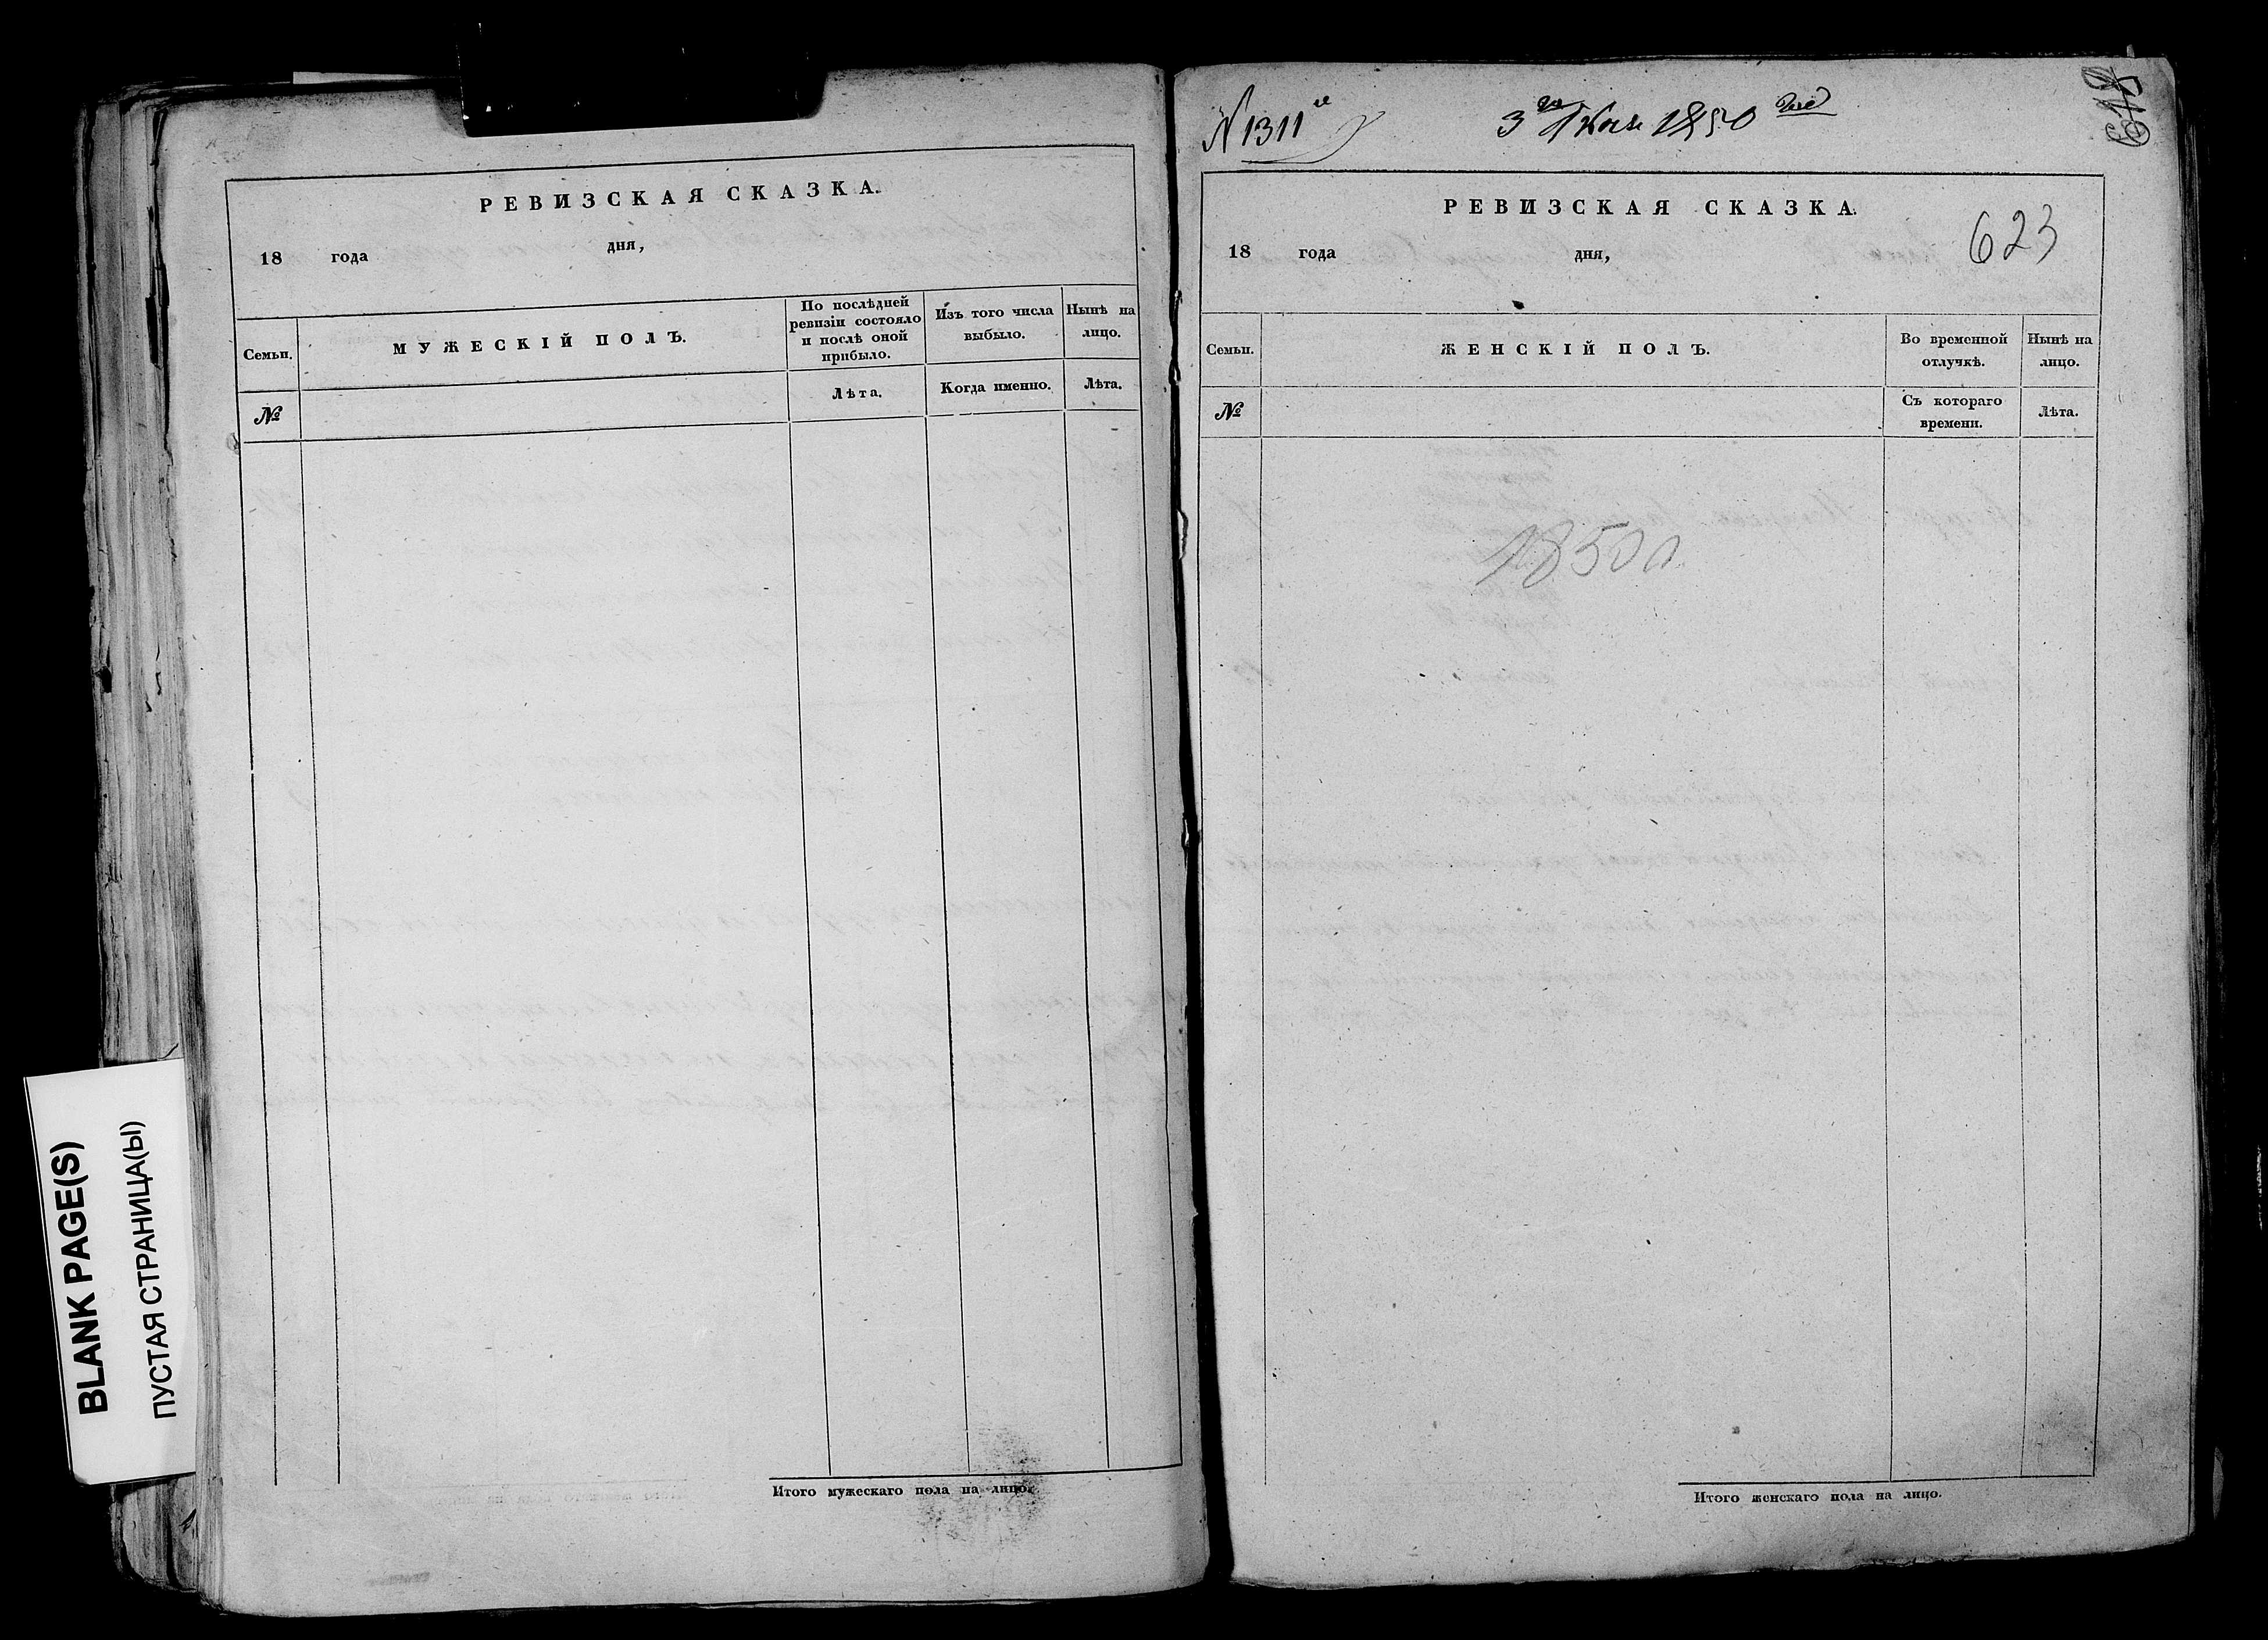 РЕВИЗСКАЯ СКАЗКА.
18 года дня,
Семьи.
МУЖЕСКІЙ ПОЛЪ.
По послѣдней ревизіи состояло и послѣ оной прибыло.
Изъ того числа выбыло.
Нынѣ на лицо.
№
Лѣта.
Когда именно.
Лѣта.
Итого мужескаго пола на лицо.
BLANK PAGE(S)
ПУСТАЯ СТРАНИЦА(Ы)
N 1311
3 1850
РЕВИЗСКАЯ СКАЗКА.
623
18 года дня,
Семьи.
ЖЕНСКІЙ ПОЛЪ.
Во временной отлучкѣ.
Нынѣ на лицо.
№
Съ котораго времени.
Лѣта.
1850
Итого женскаго пола на лицо.